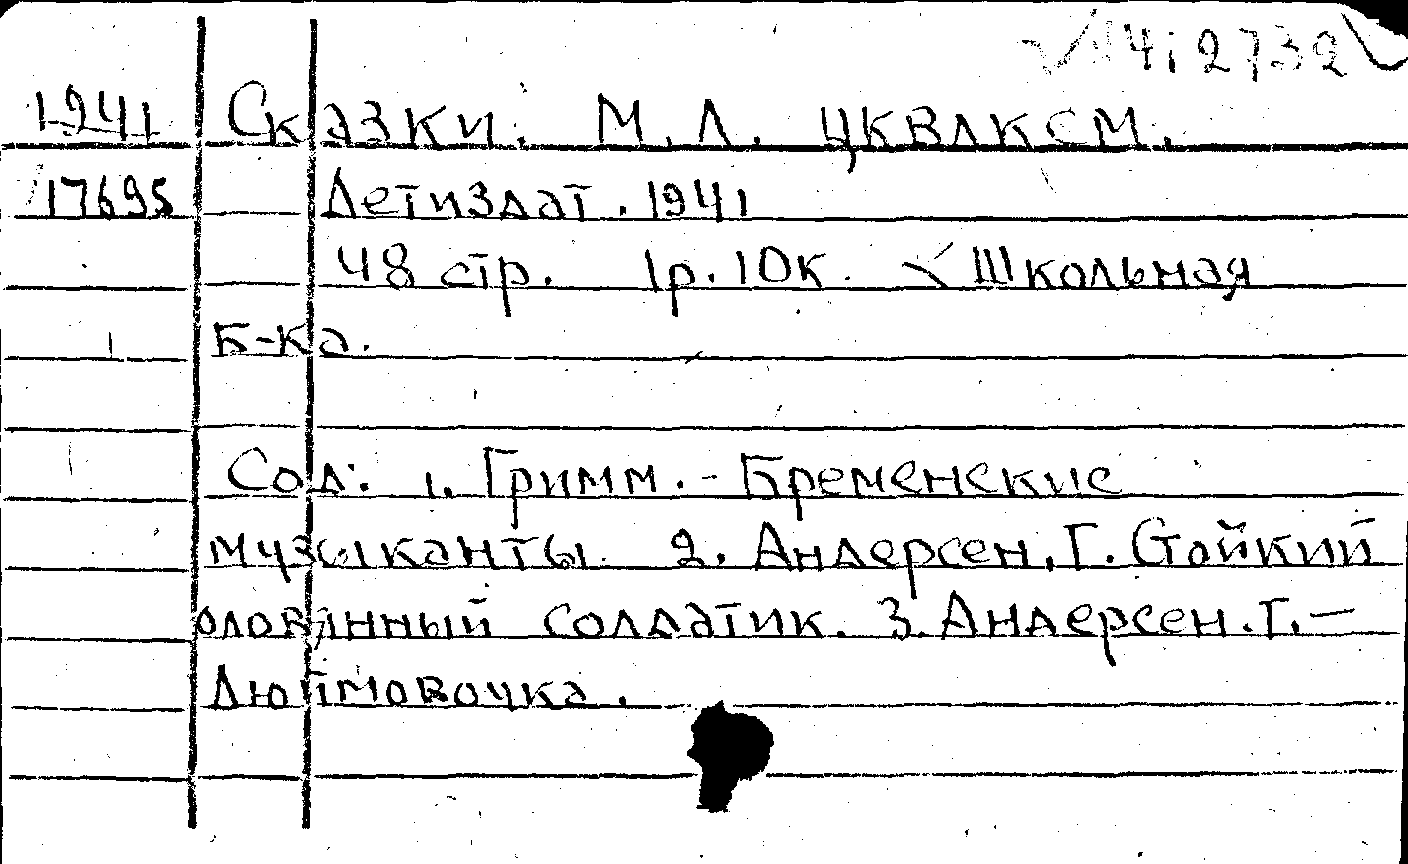 4i2732
1941 Сказки. М. Л. ЦКВЛКСМ.
17695 Детиздат. 1941
48 стр. 1р. 10к. Школьная
Б-ка.
Сод: 1. Гримм. - Бременские
музыканты. 2. Андерсен, Г. Стойкий
оловянный солдатик. 3. Андерсен. Г. -
Дюймовочка.